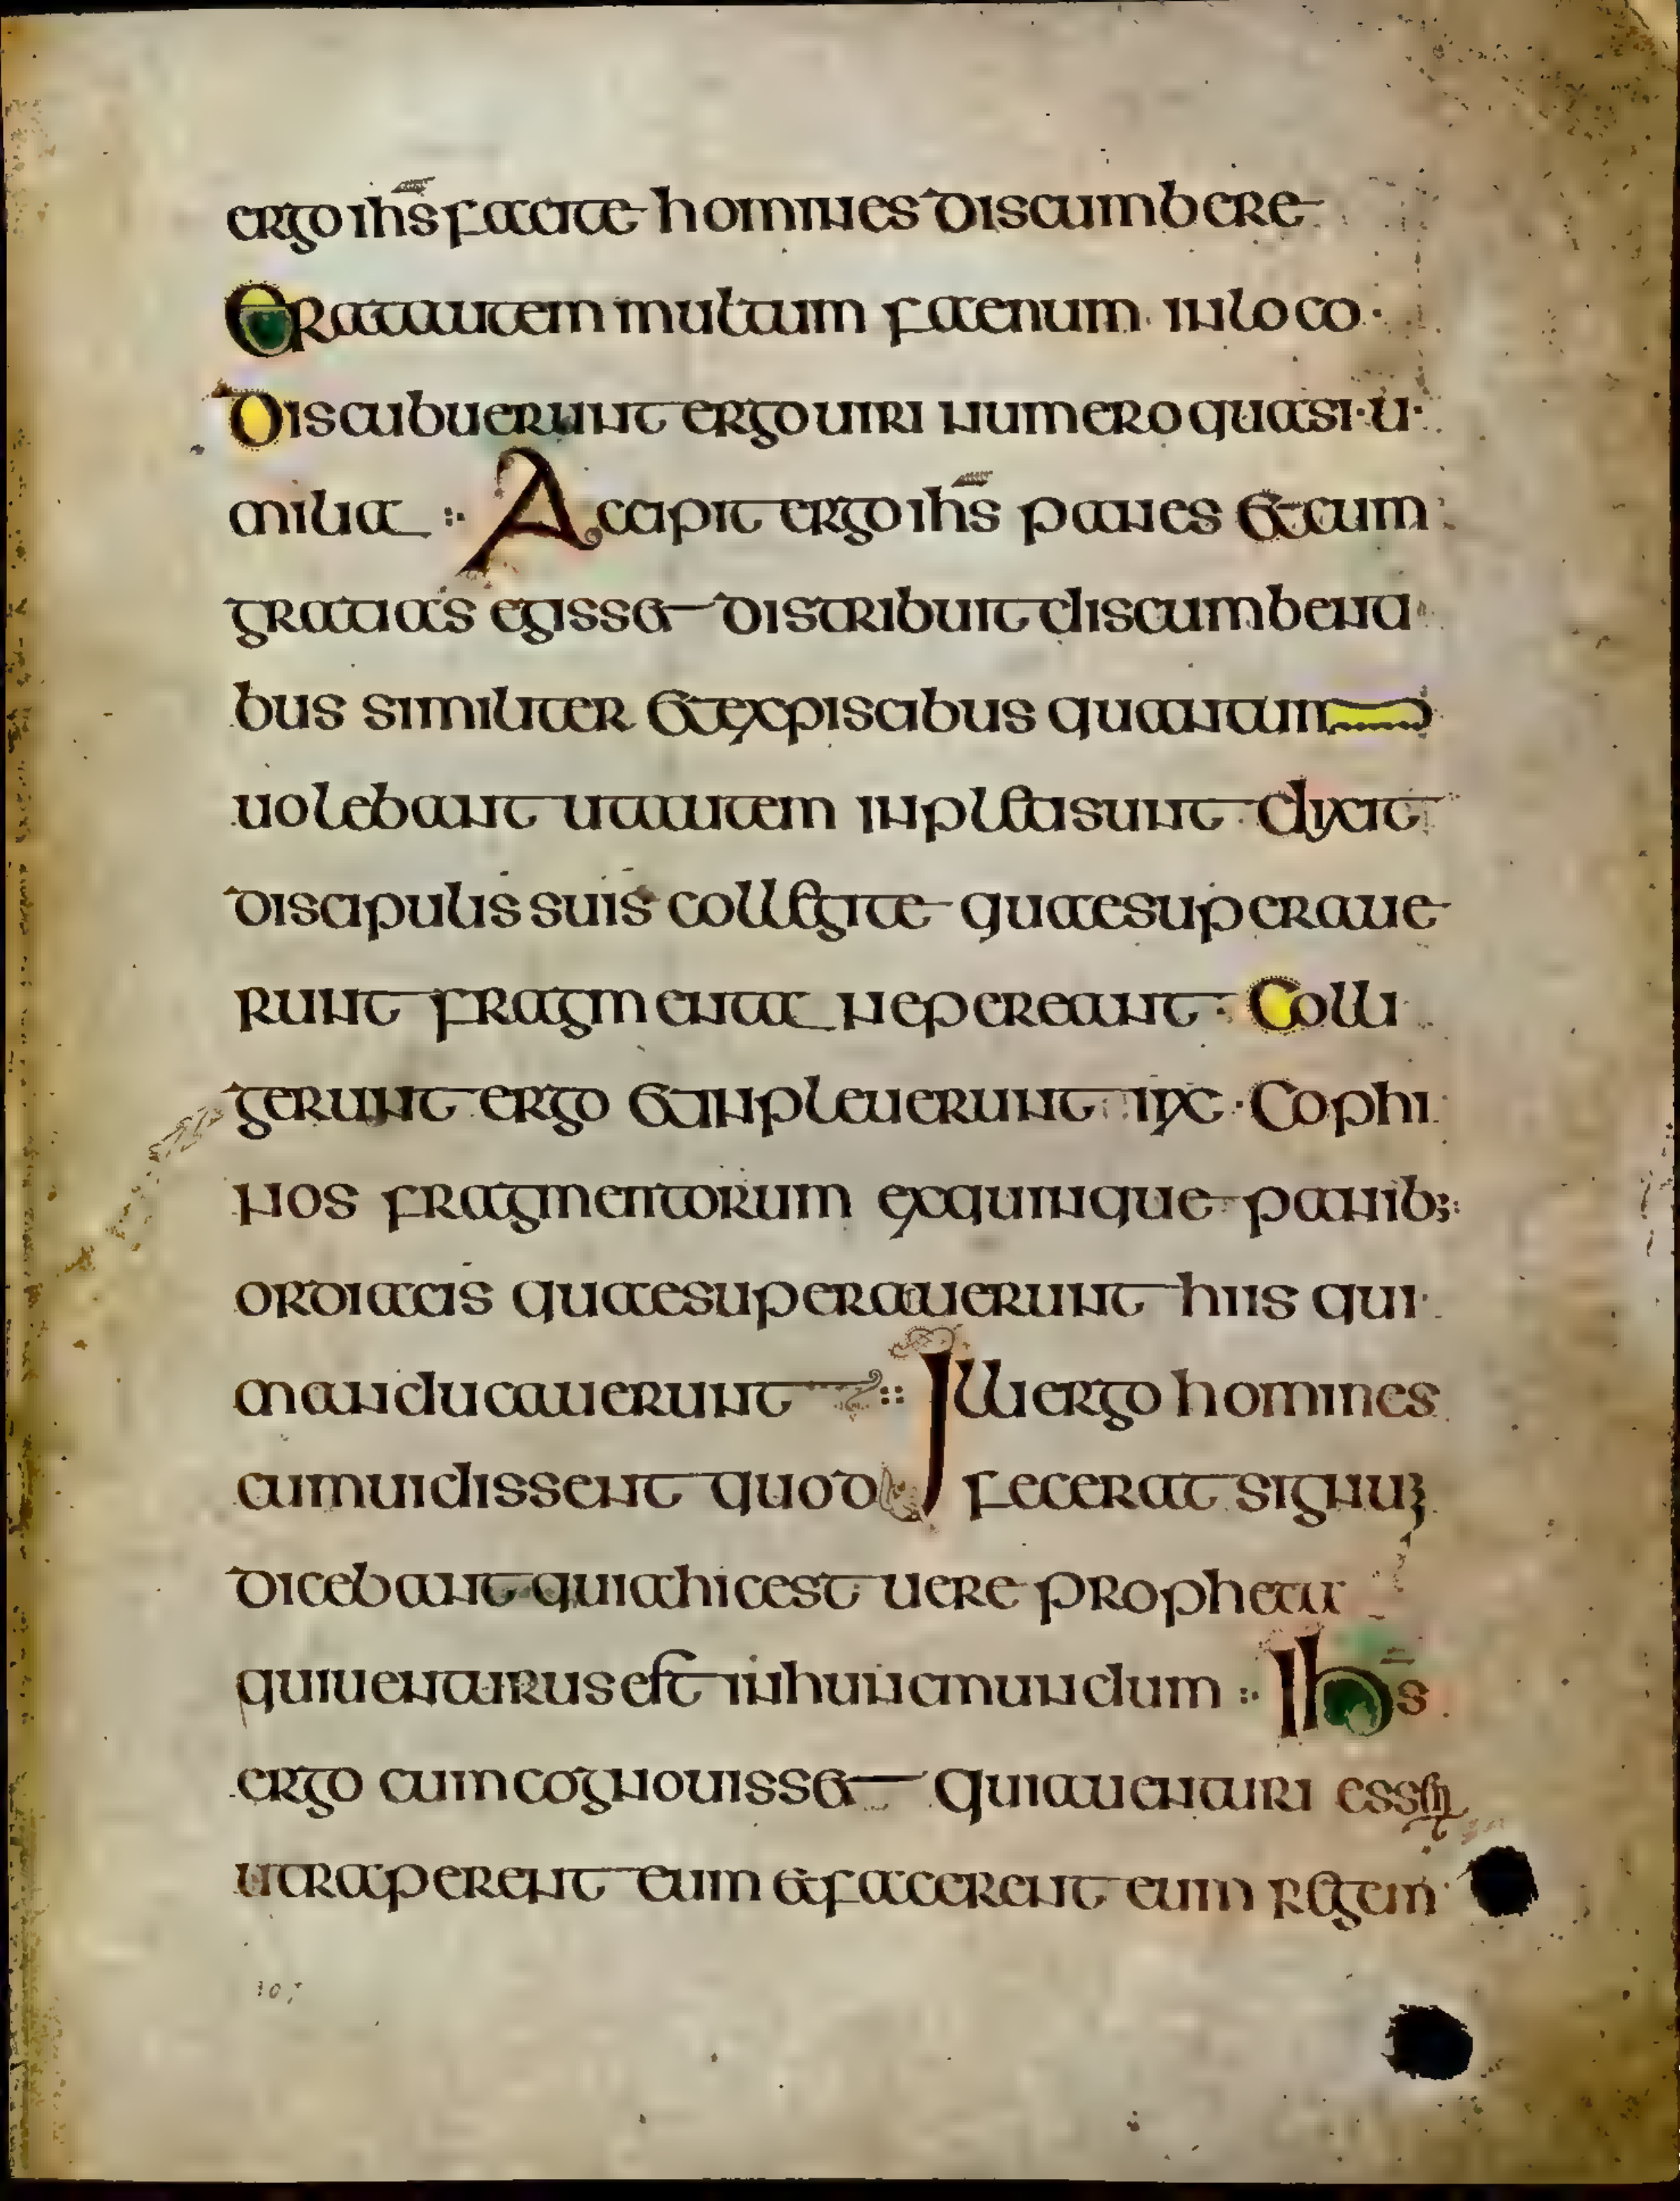 ergo ihs facite homines discumbere
Erat autem multum faenum in loco
Discubuerunt ergo uiri numero quasi u
milia Accipit ergo ihs panes et cum
gratias egisset distribuit discumbenti
bus similiter et ex piscibus quantum
uolebant ut autem inpleti sunt dixit
discipulis suis collegite quae superaue
runt fragmenta ne pereant Colli
gerunt ergo et inpleuerunt ·iixc· Cophi
nos fragmentorum ex quinque panib;
ordiacis quae superauerunt hiis qui
manducauerunt Illi ergo homines
cum uidissent quod fecerat signuꝫ
dicebant quia hic est uere propheta
qui uenturus est in hunc mundum Ihs
ergo cum cognouisset quia uenturi essent
ut raperent eum et facerent eum regem